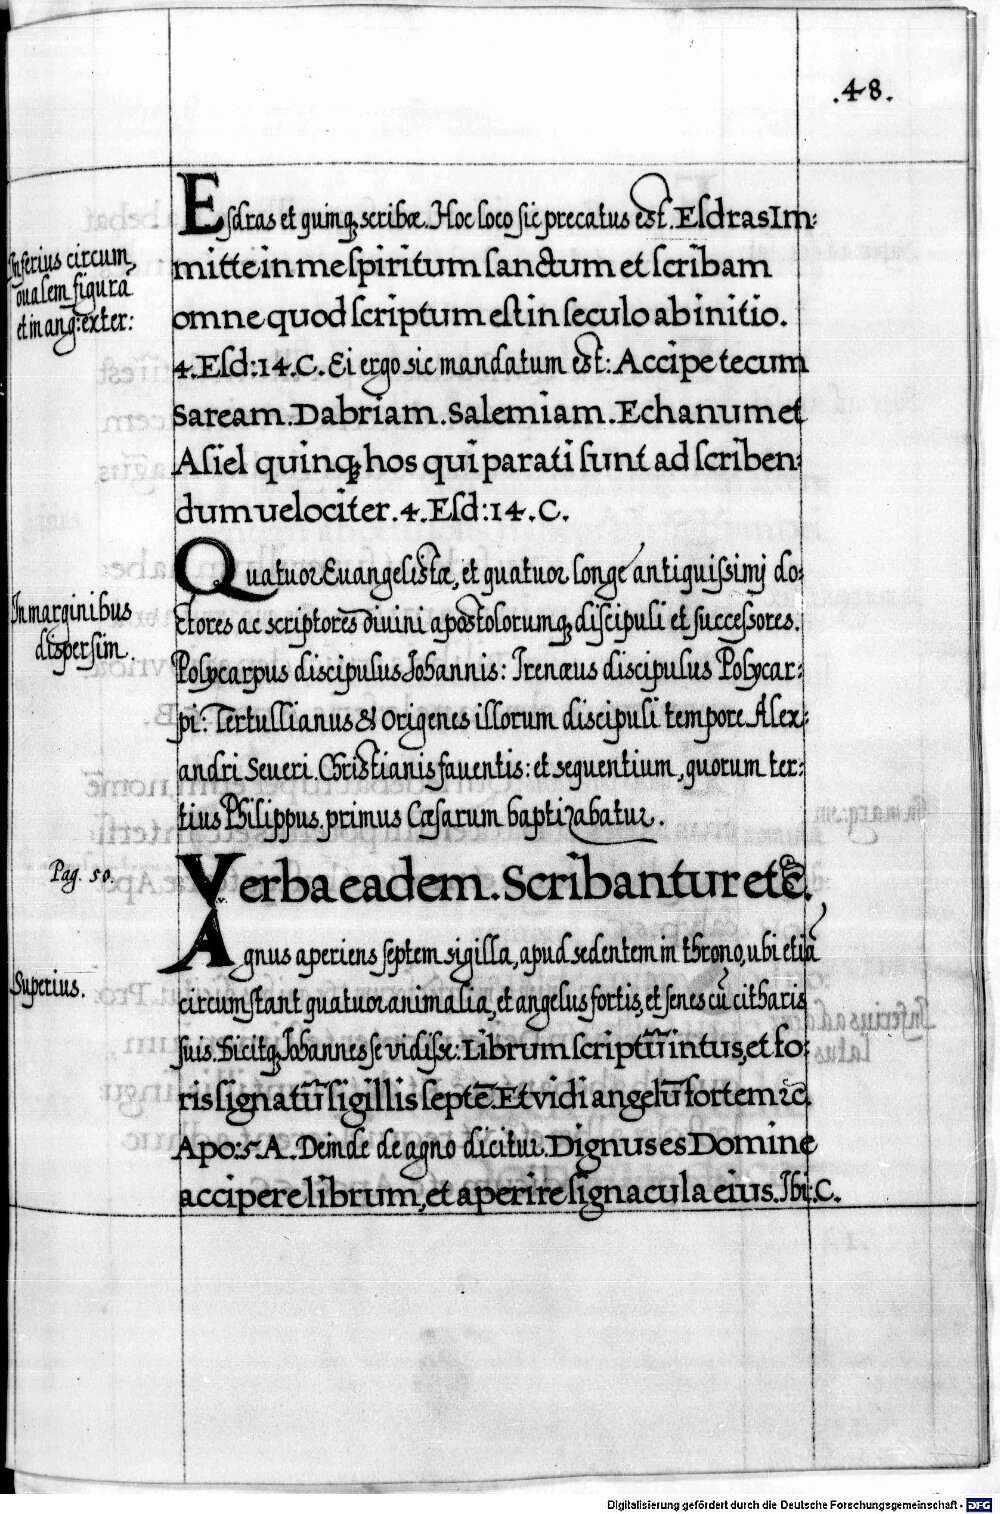 .48.
Esdras et quinqꝫ scribæ. Hoc loco sic precatus est. Esdras Im:
Inferius circum
mitte in me spiritum sanctum et scribam
oualem figura
omne quod scriptum est in seculo ab initio.
et in ang: exter:
4. Esd: 14. C. Ei ergo sic mandatum est: Accipe tecum
Saream. Dabriam. Salemiam. Echanum et
Asiel quinqꝫ hos qui parati sunt ad scriben:
dum uelociter. 4. Esd: 14. C.
Quatuor Euangelistæ, et quatuor longe antiquissimj do:
In marginibus
ctores ac scriptores diuini apostolorumqꝫ discipuli et successores.
dispersim.
Polycarpus discipulus Johannis: Irenæus discipulus Polycar:
pi: Tertullianus & Origenes illorum discipuli tempore Alex:
andri Seueri. Christianis fauentis: et sequentium, quorum ter:
tius Philippus. primus Cæsarum baptizabatur.
Pag. 50.
Verba eadem. Scribantur etc̄.
Agnus aperiens septem sigilla, apud sedentem in throno, ubi etiā
Superius.
circumstant quatuor animalia, et angelus fortis, et senes cū citharis
suis. Dicitqꝫ Johannes se vidisse: Librum scriptū intus, et fo:
ris signatū sigillis septē. Et vidi angelū fortem ꝛc̄.
Apo: 5. A. Deinde de agno dicitur. Dignus es Domine
accipere librum, et aperire signacula eius. Jbi: C.
Digitalisierung gefördert durch die Deutsche Forschungsgemeinschaft - DFG